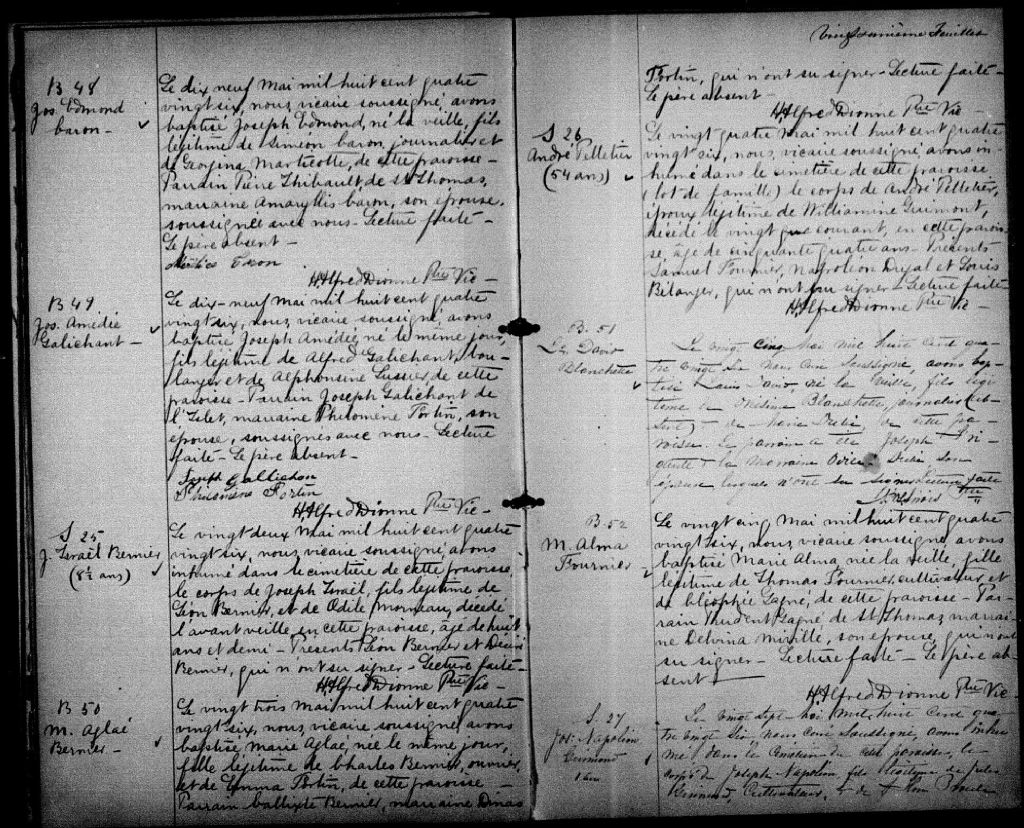 B 48
Jos. Edmond
baron -
Le dix neuf Mai mil huit cent quatre
vingt six, nous, vicaire soussigné, avons
baptisé Joseph Edmond, né la veille, fils
légitime de Siméon baron, journalier et
de Georgina Marticotte, de cette paroisse -
Parrain Pierre Thibault, de St Thomas,
marraine Amaryllis baron, son épouse,
soussignée avec nous - Lecture faite -
Le père absent -
H. Alfred Dionne Ptre Vic -
B 49
Jos. Amédée
Galichant -
Le dix-neuf Mai mil huit cent quatre
vingt six, nous, vicaire soussigné, avons
baptisé Joseph Amédée, né le même jour,
fils légitime de Alfred Galichant, bou-
langer et de Alphonsine Lussier de cette
paroisse - Parrain Joseph Galichant de
l'Islet, marraine Philomène Fortin, son
épouse, soussignés avec nous - Lecture
faite - Le père absent -
Joseph Gallichon
Philomène Fortin
H. Alfred Dionne Ptre Vic -
S 25
J. Israël Bernier
(8½ ans)
Le vingt deux Mai mil huit cent quatre
vingt six, nous, vicaire soussigné, avons
inhumé dans le cimetière de cette paroisse,
le corps de Joseph Israël, fils légitime de
Léon Bernier, et de Odile Morneau, décédé
l'avant veille, en cette paroisse, âgé de huit
ans et demi - Présents Léon Bernier et Désiré
Bernier, qui n'ont su signer - Lecture faite -
H. Alfred Dionne Ptre Vic -
B 50
M. Aglaé
Bernier -
Le vingt trois Mai mil huit cent quatre
vingt six, nous, vicaire soussigné, avons
baptisé Marie Aglaé, née le même jour,
fille légitime de Charles Bernier, ouvrier,
et de Emma Fortin, de cette paroisse -
Parrain Callixte Bernier, marraine Dinas
Feuillet
Fortin, qui n'ont su signer - Lecture faite -
Le père absent -
H. Alfred Dionne Ptre Vic -
S 26
André Pelletier
(54 ans)
Le vingt quatre Mai mil huit cent quatre
vingt six, nous, vicaire soussigné, avons in-
humé dans le cimetière de cette paroisse
(lot de famille) le corps de André Pelletier,
époux légitime de Williamine Guimont,
décédé le vingt courant, en cette parois-
se, âgé de cinquante quatre ans - Présents
Samuel Fournier, Napoléon Dugal et Louis
Bélanger, qui n'ont pu signer - Lecture faite
H. Alfred Dionne Ptre Vic -
B. 51
Ls David
Blanchette
Le vingt cinq Mai mil huit cent qua-
tre vingt six nous curé soussigné, avons bap-
tisé Louis David, né la veille, fils légi-
time de Onésime Blanchette, journalier
de Marie de cette pa-
roisse. Le parrain a été Joseph
la marraine son
épouse lesquels n'ont su signer. Lecture faite
Ptre
B. 52
M. Alma
Fournier -
Le vingt cinq Mai mil huit cent quatre
vingt six, nous, vicaire soussigné, avons
baptisé Marie Alma, née la veille, fille
légitime de Thomas Fournier, cultivateur, et
de Cléophée Gagné, de cette paroisse - Par-
rain Prudent Gagné, de St Thomas, marrai-
ne Delvina Miville, son épouse, qui n'ont
su signer - Lecture faite - Le père ab-
sent -
H. Alfred Dionne Ptre Vic -
S. 27
Jos. Napoléon
Guimond
1 an
Le vingt sept Mai mil huit cent qua-
tre vingt six nous curé soussigné, avons inhu-
mé dans le cimetière de cette paroisse, le
corps de Joseph Napoléon fils légitime de Jules
Guimond, Cultivateur, & de